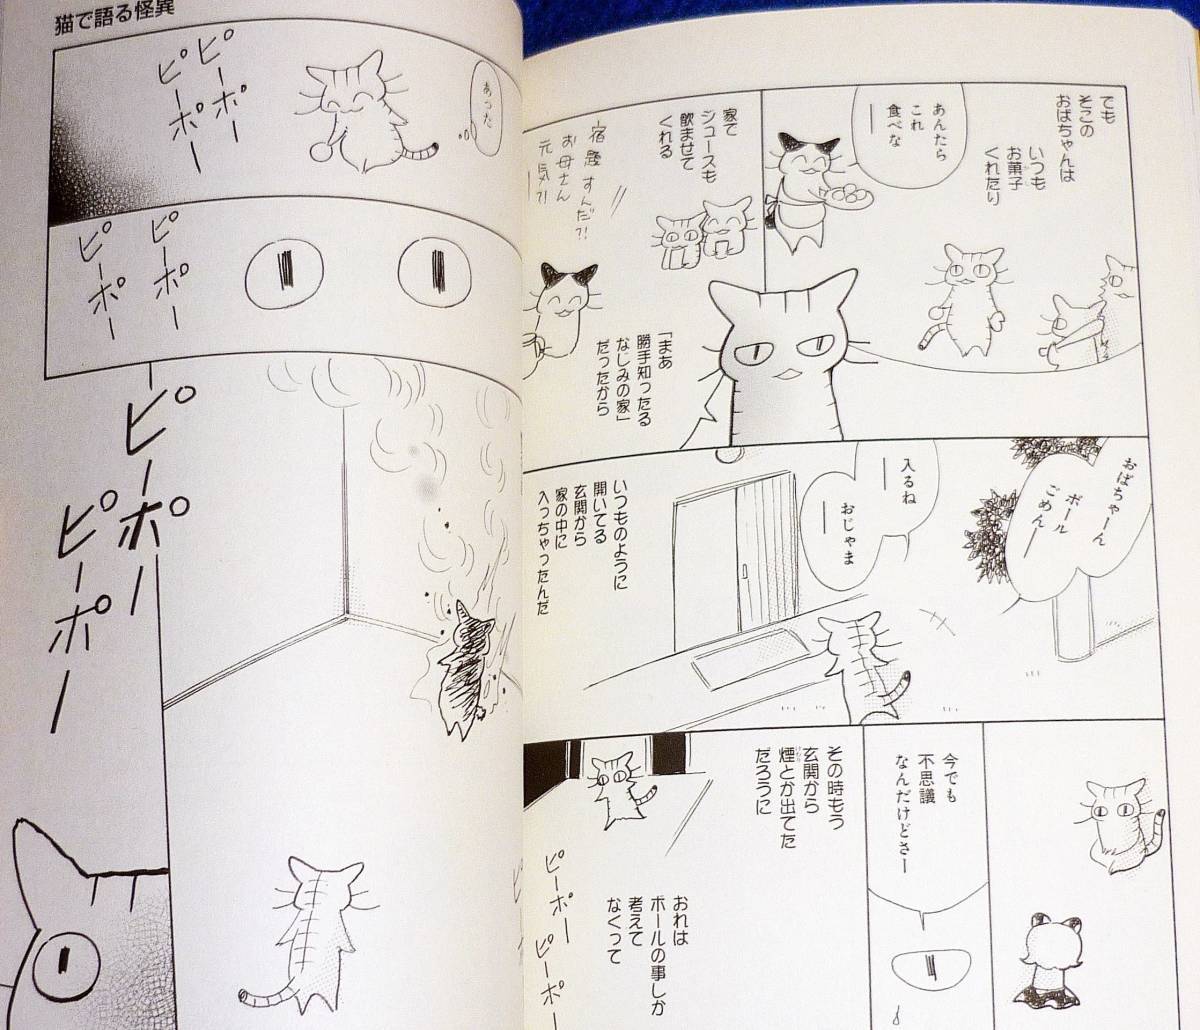 でも
そこの
おばちゃんは
いつも
お菓子
くれたり
あんたら
これ
食べなー
家で
ジュースも
飲ませて
くれる
宿題すんだ?!
お母さん
元気?!
「まあ
勝手知ったる
なじみの家」
だったから
おばちゃーん
ボール
ごめんー
入るねー
おじゃまー
いつものように
開いてる
玄関から
家の中に
入っちゃったんだ
今でも
不思議
なんだけどさー
その時もう
玄関から
煙とか出てた
だろうに
おれは
ボールの事しか
考えて
なくって
ピーポー
ピーポー
猫で語る怪異
あった
ピーポー
ピーポー
ピーポー
ピーポー
ピーポー
ピーポー